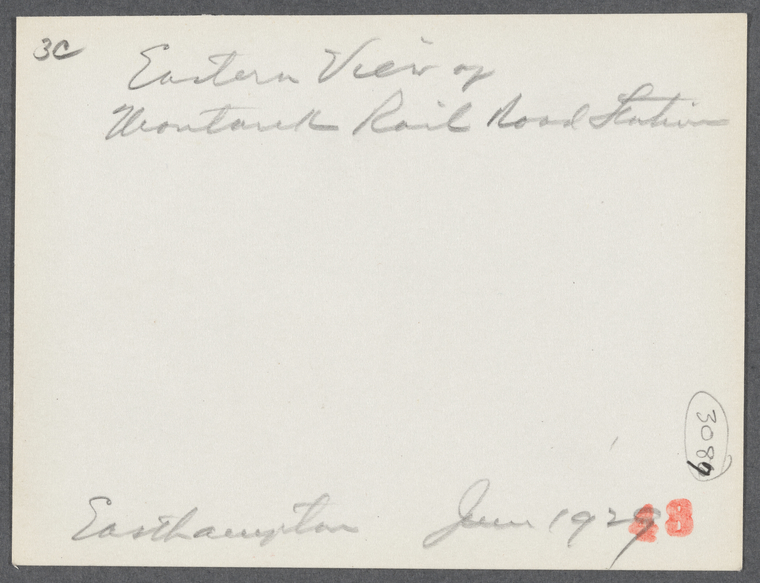 3C
Eastern View of
Montauk Rail Road Station
308
Easthampton June 1929
B